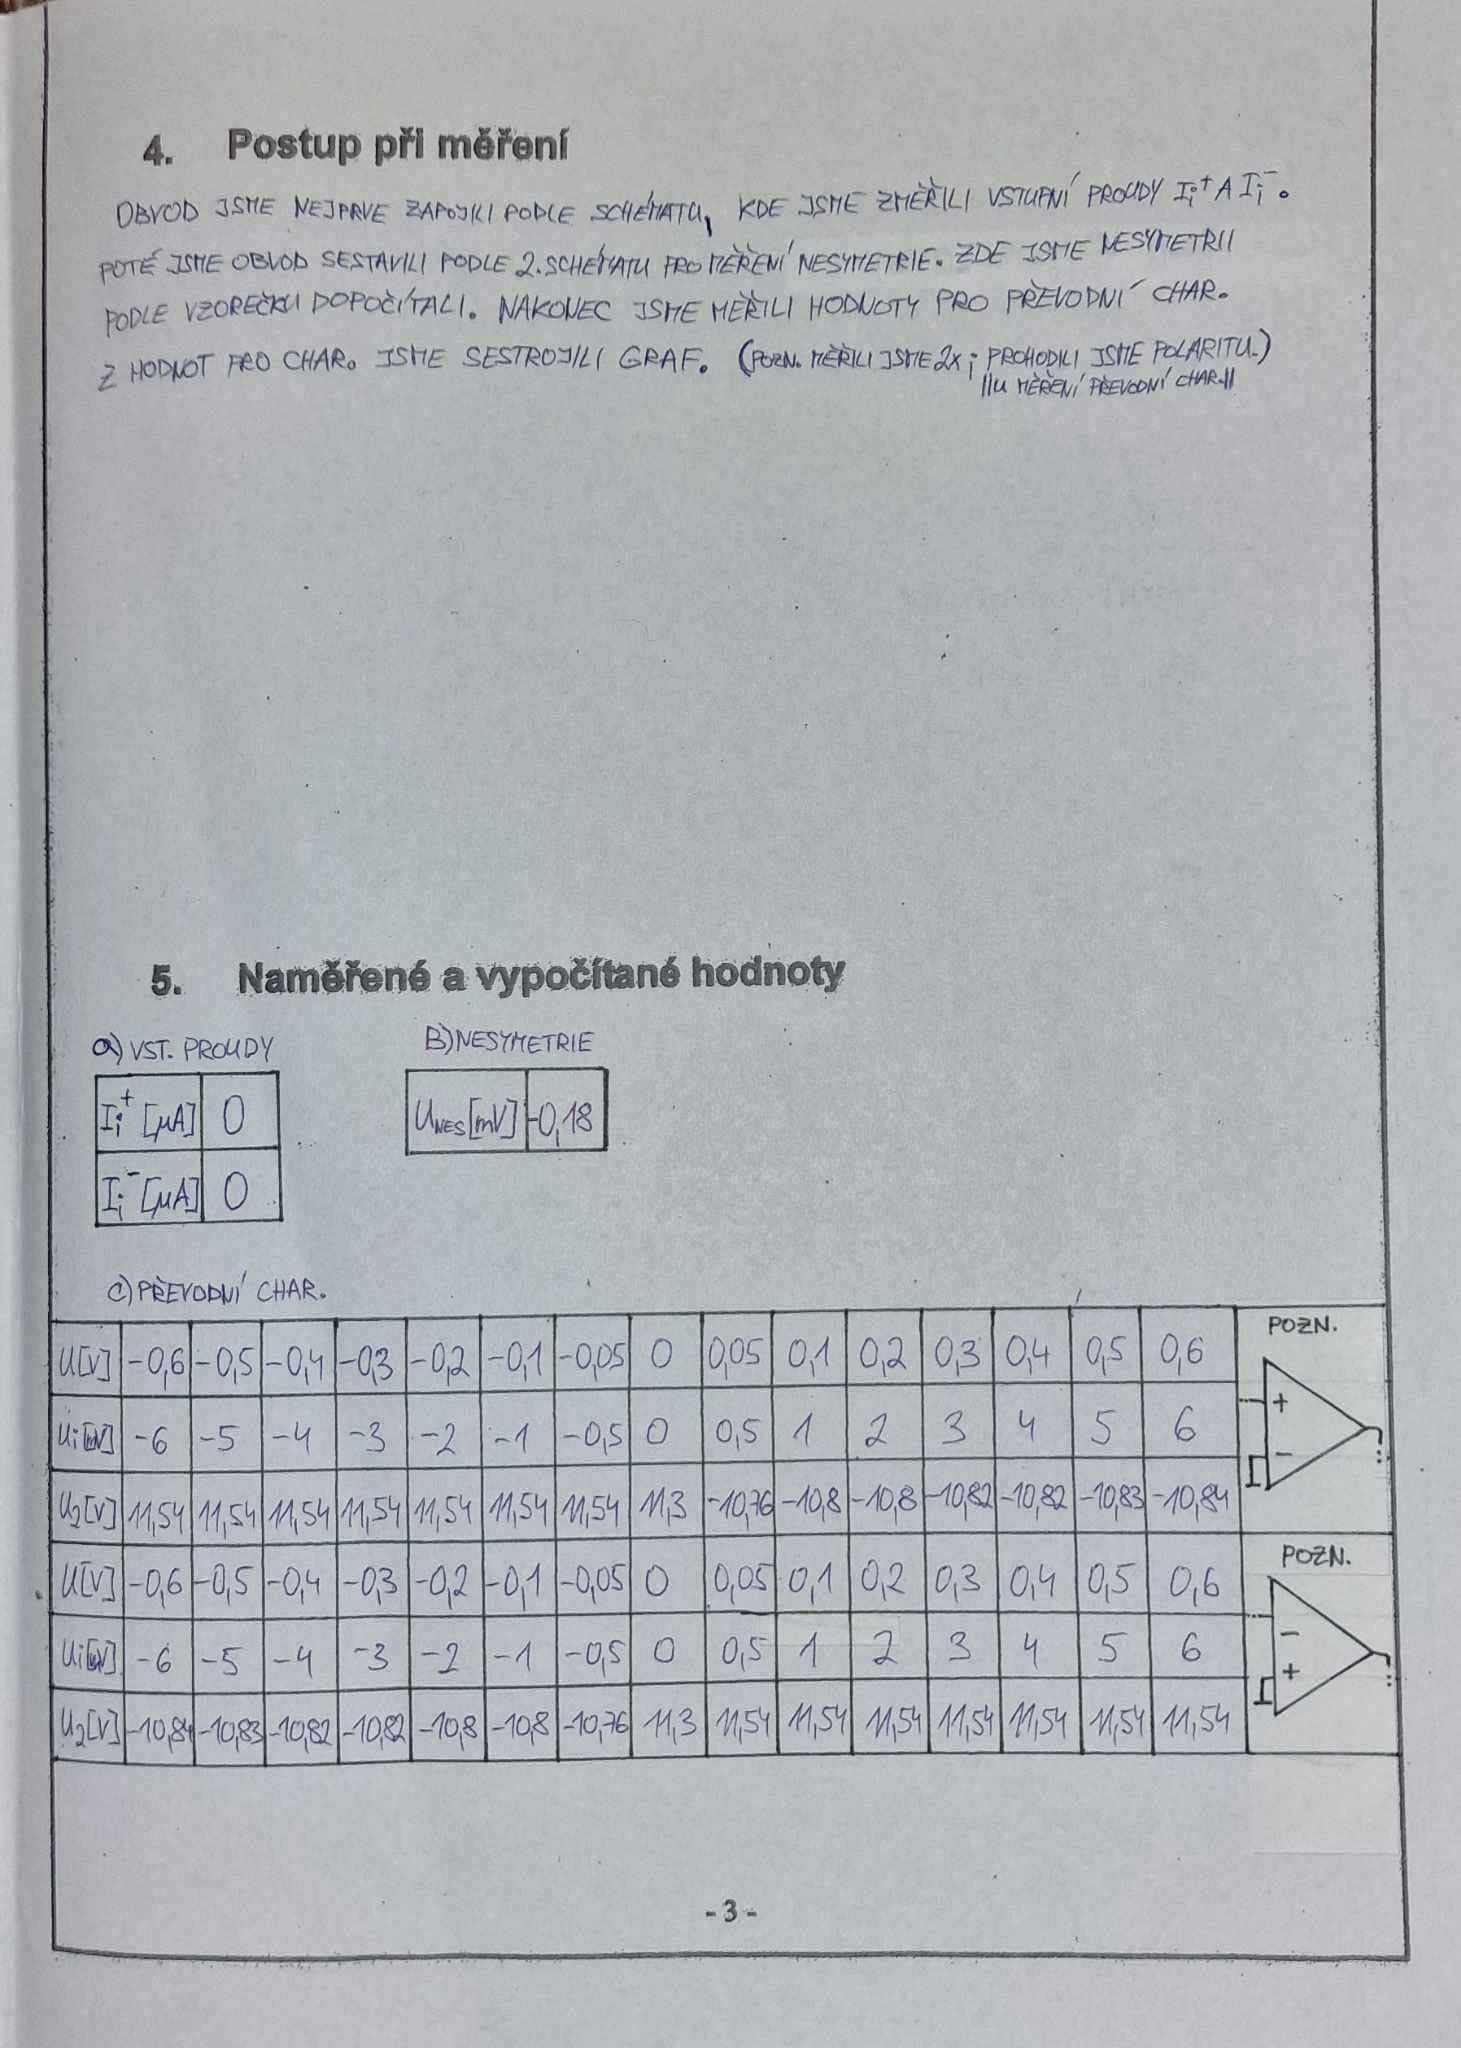 4. Postup při měření
OBVOD JSME NEJPRVE ZAPOJILI PODLE SCHÉMATU, KDE JSME ZMĚŘILI VSTUPNÍ PROUDY Ii+ A Ii-.
POTÉ JSME OBVOD SESTAVILI PODLE 2. SCHÉMATU PRO MĚŘENÍ NESYMETRIE. ZDE JSME NESYMETRII
PODLE VZOREČKU DOPOČÍTALI. NAKONEC JSME MĚŘILI HODNOTY PRO PŘEVODNÍ CHAR.
Z HODNOT PRO CHAR. JSME SESTROJILI GRAF. (POZN. MĚŘILI JSME 2x; PROHODILI JSME POLARITU.)
||U MĚŘENÍ PŘEVODNÍ CHAR.||
5. Naměřené a vypočítané hodnoty
a) VST. PROUDY
Ii+ [μA] 0
Ii- [μA] 0
B) NESYMETRIE
UNES [mV] -0,18
C) PŘEVODNÍ CHAR.
U[V] -0,6 -0,5 -0,4 -0,3 -0,2 -0,1 -0,05 0 0,05 0,1 0,2 0,3 0,4 0,5 0,6
Ui[mV] -6 -5 -4 -3 -2 -1 -0,5 0 0,5 1 2 3 4 5 6
U2[V] 11,54 11,54 11,54 11,54 11,54 11,54 11,54 11,3 -10,76 -10,8 -10,8 -10,82 -10,82 -10,83 -10,84
POZN.
+
-
U[V] -0,6 -0,5 -0,4 -0,3 -0,2 -0,1 -0,05 0 0,05 0,1 0,2 0,3 0,4 0,5 0,6
Ui[mV] -6 -5 -4 -3 -2 -1 -0,5 0 0,5 1 2 3 4 5 6
U2[V] -10,84 -10,83 -10,82 -10,82 -10,8 -10,8 -10,76 11,3 11,54 11,54 11,54 11,54 11,54 11,54 11,54
POZN.
-
+
- 3 -